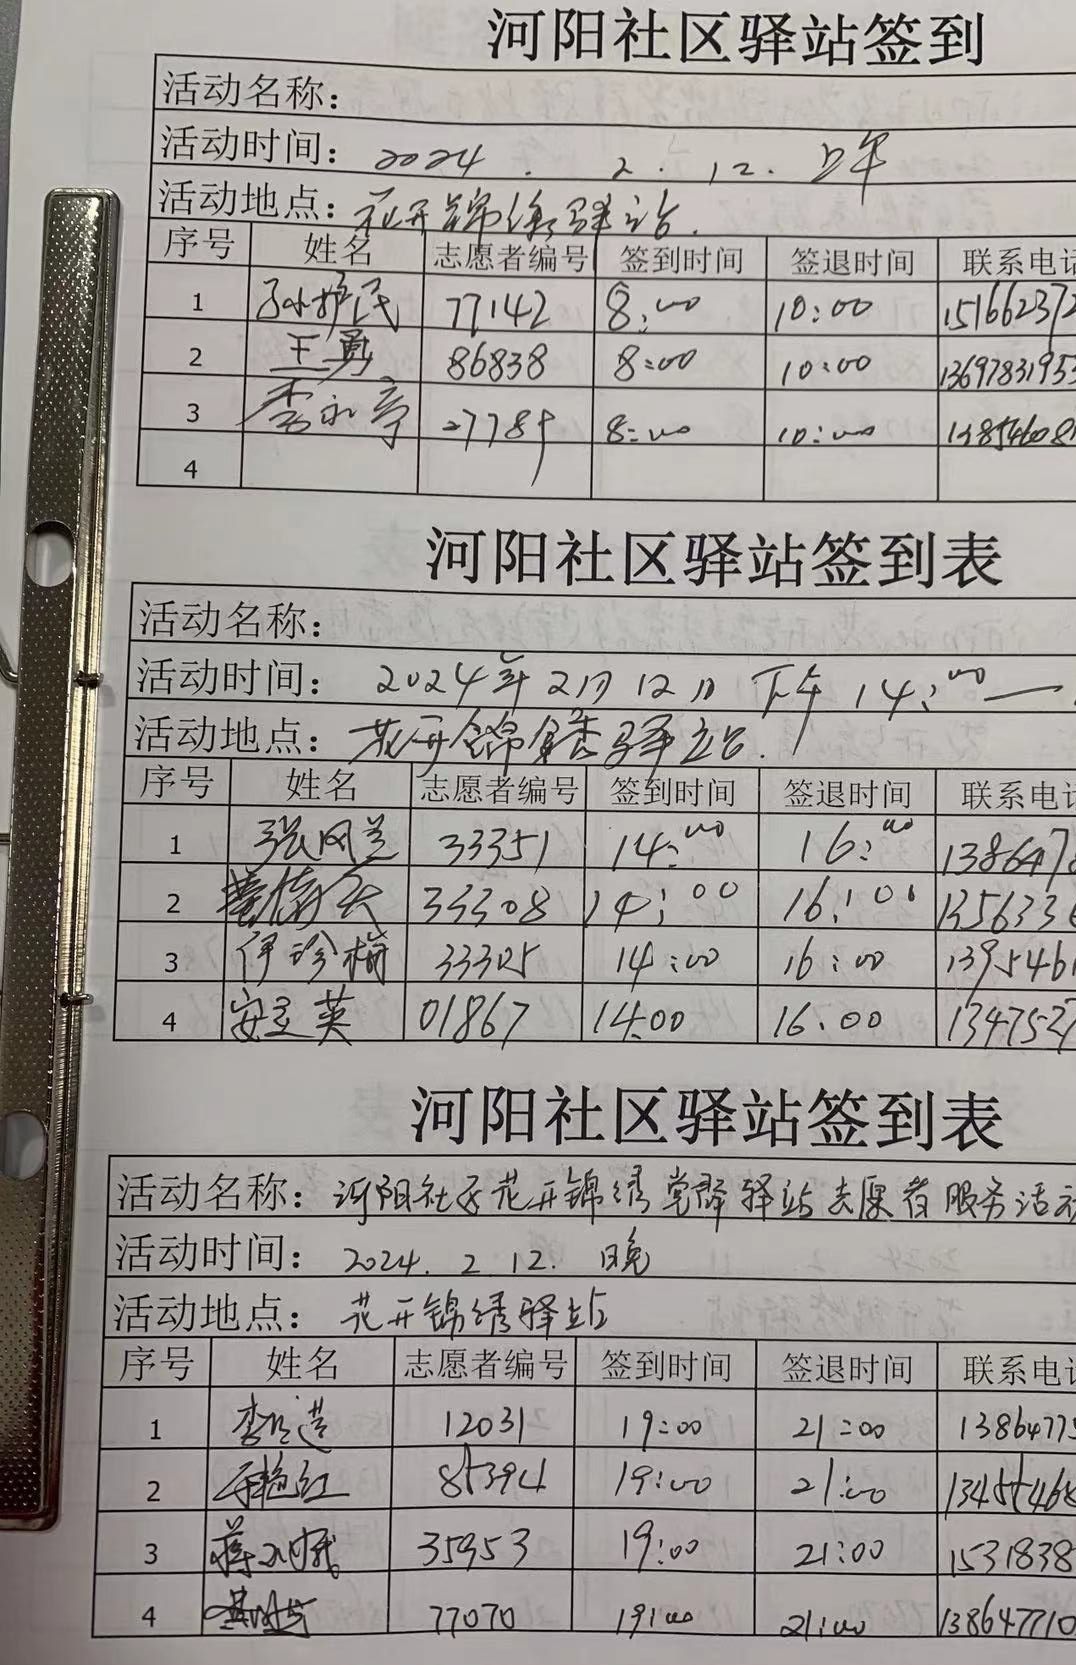 河阳社区驿站签到
活动名称：
活动时间：2024．2．12．上午
活动地点：花开锦绣驿站．
序号 姓名 志愿者编号 签到时间 签退时间 联系电话
1 孙护民 77142 8:00 10:00 151662372
2 王勇 86838 8:00 10:00 1369783195
3 李永亭 27789 8:00 10:00 13854608
4
河阳社区驿站签到表
活动名称：
活动时间：2024年2月12日 下午 14:00—
活动地点：花开锦绣驿站．
序号 姓名 志愿者编号 签到时间 签退时间 联系电话
1 张风兰 33351 14:00 16:00 138647
2 33308 14:00 16:00 135633
3 伊珍梅 33305 14:00 16:00 1395461
4 安灵英 01867 14:00 16:00 1347527
河阳社区驿站签到表
活动名称：河阳社区花开锦绣党群驿站志愿者服务活动
活动时间：2024．2．12．晚
活动地点：花开锦绣驿站
序号 姓名 志愿者编号 签到时间 签退时间 联系电话
1 12031 19:00 21:00 13864775
2 85394 19:00 21:00 13455468
3 35953 19:00 21:00 1531838
4 77070 19:00 21:00 138647710